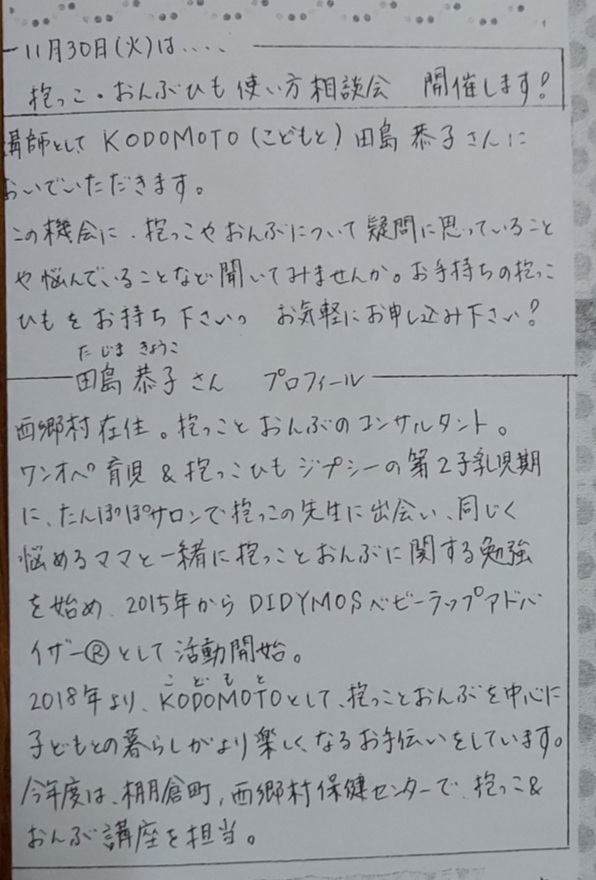 11月30日(火)は....
抱っこ・おんぶひも使い方相談会 開催します!
講師として KODOMOTO(こどもと)田島 恭子さんに
おいでいただきます。
この機会に、抱っこやおんぶについて疑問に思っていること
や悩んでいることなど聞いてみませんか。お手持ちの抱っこ
ひもをお持ち下さいっ お気軽にお申し込み下さい!
たじま きょうこ
田島 恭子さん プロフィール
西郷村在住。抱っことおんぶのコンサルタント。
ワンオペ育児&抱っこひもジプシーの第2子乳児期
に、たんぽぽサロンで抱っこの先生に出会い、同じく
悩めるママと一緒に抱っことおんぶに関する勉強
を始め、2015年からDIDYMOSベビーラップアドバ
イザー®として活動開始。
こどもと
2018年より、KODOMOTOとして、抱っことおんぶを中心に
子どもとの暮らしがより楽しくなるお手伝いをしています。
今年度は、棚倉町,西郷村保健センターで、抱っこ&
おんぶ講座を担当。